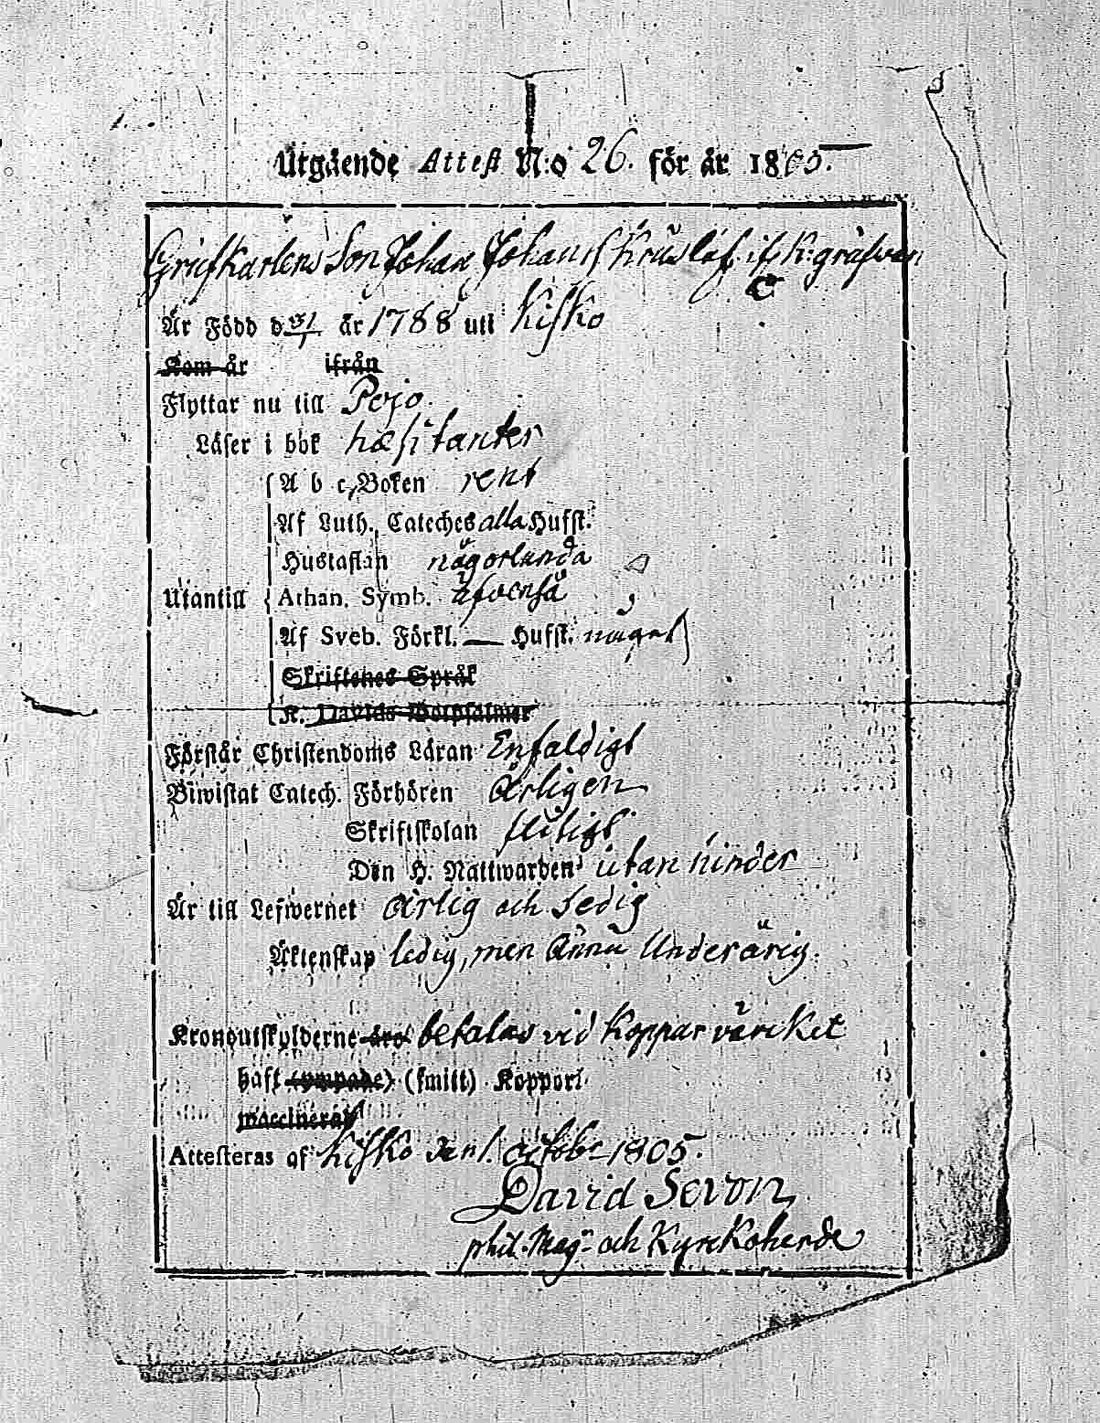 Utgående Attest N:o 26. för år 1805.
Grufkarlens Son Johan Johans
Är Född d 31/1 år 1788 uti Kisko
Kom år ifrån
Flyttar nu till Pojo.
Läser i bok hæsitanter
A b c, Boken rent
Af Luth. Cateches alla Hufst.
Hustaflan någorlunda
Utantill Athan. Symb. äfvenså
Af Sveb. Förkl. — Hufst. något
Skriftenes Språk
K. Davids Botpsalmer
Förstår Christendoms Läran Enfaldigt
Biwistat Catech. Förhören Årligen
Skriftskolan flitigt
Den H. Nattwarden utan hinder
Är till Lefwernet ärlig och Sedig
Äktenskap ledig, men ännu Underårig.
Kronoutskylderne äro betalas vid Kopparvärcket
haft (ympade) (smitt) Koppor
maccinerad
Attesteras af Kisko den 1. octobr 1805.
David Sevon
phil. Mag. och Kyrckoherde